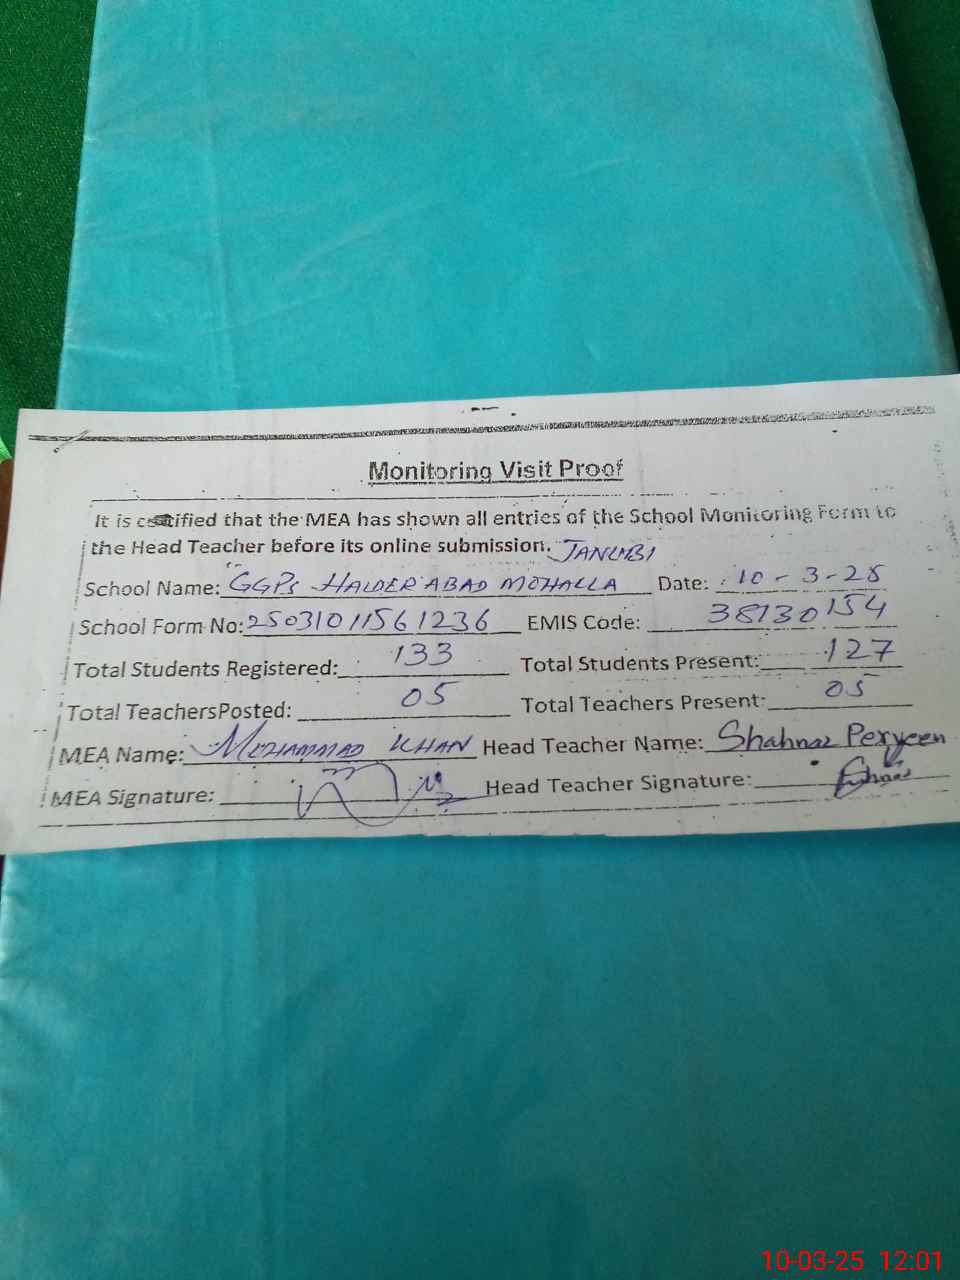 Monitoring Visit Proof
It is certified that the MEA has shown all entries of the School Monitoring Form to
the Head Teacher before its online submission. JANUBI
School Name: GGPS HAIDER ABAD MOHALLA Date: 10-3-25
School Form No: 2503101156 1236 EMIS Code: 38130154
Total Students Registered: 133 Total Students Present: 127
Total TeachersPosted: 05 Total Teachers Present: 05
MEA Name: MUHAMMAD KHAN Head Teacher Name: Shahnaz Perveen
MEA Signature: Head Teacher Signature: Shahnaz
10-03-25 12:01